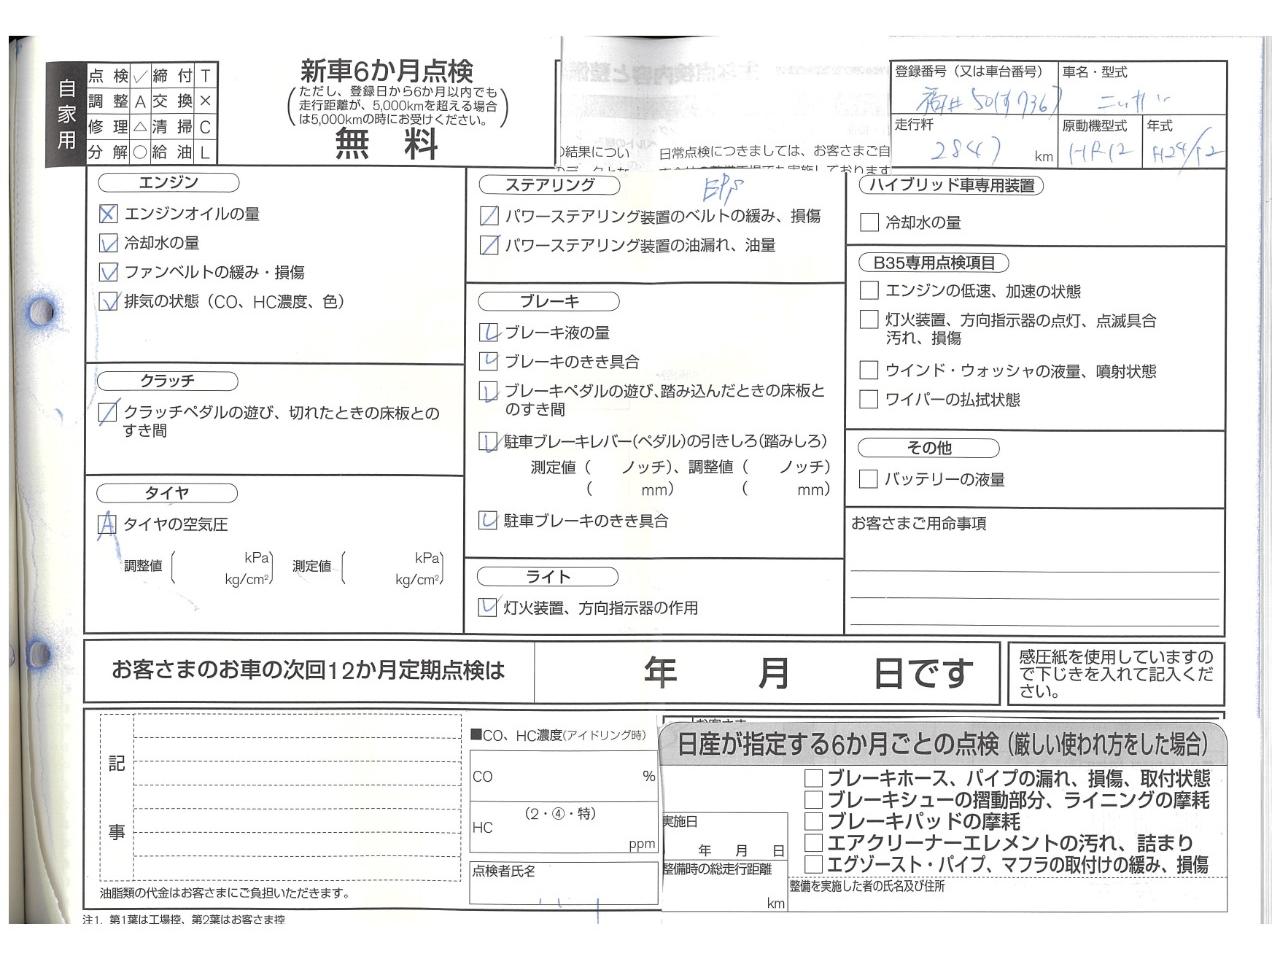 自家用
点検 ✓ 締付 T
調整 A 交換 ×
修理 △ 清掃 C
分解 ○ 給油 L
新車6か月点検
(ただし、登録日から6か月以内でも
走行距離が、5,000kmを超える場合
は5,000kmの時にお受けください。)
無料
の結果につい
日常点検につきましては、お客さまご自
登録番号（又は車台番号）
福井 501す7367
車名・型式
走行粁
2847 km
原動機型式
HR12
年式
H24/12
エンジン
エンジンオイルの量
冷却水の量
ファンベルトの緩み・損傷
排気の状態（CO、HC濃度、色）
クラッチ
クラッチペダルの遊び、切れたときの床板との
すき間
タイヤ
A タイヤの空気圧
調整値 ( kPa kg/cm² ) 測定値 ( kPa kg/cm² )
ステアリング EPS
パワーステアリング装置のベルトの緩み、損傷
パワーステアリング装置の油漏れ、油量
ブレーキ
ブレーキ液の量
ブレーキのきき具合
ブレーキペダルの遊び、踏み込んだときの床板と
のすき間
駐車ブレーキレバー(ペダル)の引きしろ(踏みしろ)
測定値（ ノッチ）、調整値（ ノッチ）
（ mm） （ mm）
駐車ブレーキのきき具合
ライト
灯火装置、方向指示器の作用
ハイブリッド車専用装置
冷却水の量
B35専用点検項目
エンジンの低速、加速の状態
灯火装置、方向指示器の点灯、点滅具合
汚れ、損傷
ウインド・ウォッシャの液量、噴射状態
ワイパーの払拭状態
その他
バッテリーの液量
お客さまご用命事項
お客さまのお車の次回12か月定期点検は 年 月 日です
感圧紙を使用していますの
で下じきを入れて記入くだ
さい。
記事
油脂類の代金はお客さまにご負担いただきます。
注1．第1葉は工場控、第2葉はお客さま控
■CO、HC濃度(アイドリング時)
CO %
(2・④・特)
HC ppm
点検者氏名
お客さま
日産が指定する6か月ごとの点検（厳しい使われ方をした場合）
ブレーキホース、パイプの漏れ、損傷、取付状態
ブレーキシューの摺動部分、ライニングの摩耗
ブレーキパッドの摩耗
エアクリーナーエレメントの汚れ、詰まり
エグゾースト・パイプ、マフラの取付けの緩み、損傷
実施日
年 月 日
整備時の総走行距離
km
整備を実施した者の氏名及び住所